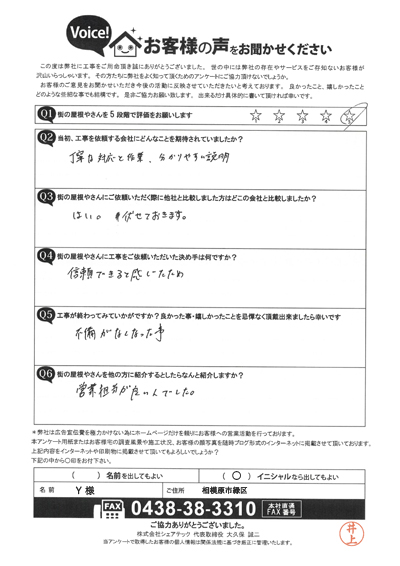 Voice!
お客様の声をお聞かせください
この度は弊社に工事をご用命頂き誠にありがとうございました。世の中には弊社の存在やサービスをご存知ないお客様が
沢山いらっしゃいます。その方たちに弊社をよく知って頂くためのアンケートにご協力頂けないでしょうか。
お客様のご意見をお聞かせいただき今後の活動に反映させていただきたいと考えております。良かったこと、嬉しかったこと
どのような些細な事でも結構です。是非ご協力お願い致します。出来るだけ具体的に書いて頂ければ幸いです。
Q1 街の屋根やさんを5段階で評価をお願いします
Q2 当初、工事を依頼する会社にどんなことを期待されていましたか?
丁寧な対応と作業、分かりやすい説明
Q3 街の屋根やさんにご依頼いただく際に他社と比較しました方はどこの会社と比較しましたか?
はい。 伏せておきます。
Q4 街の屋根やさんに工事をご依頼いただいた決め手は何ですか?
信頼できると感じたため
Q5 工事が終わってみていかがですか?良かった事・嬉しかったことを忌憚なく頂戴出来ましたら幸いです
不備がなくなった事
Q6 街の屋根やさんを他の方に紹介するとしたらなんと紹介しますか?
営業担当が良い人でした。
*弊社は広告宣伝費を極力かけない為にホームページだけを頼りにお客様への営業活動を行っております。
本アンケート用紙またはお客様宅の調査風景や施工状況、お客様の顔写真を随時ブログ形式のインターネットに掲載させて頂いております。
上記内容をインターネットや印刷物に掲載させて頂いてもよろしいでしょうか?
下記の中から〇印をお付下さい。
( )名前を出してもよい (〇)イニシャルなら出してもよい
名前 Y 様 ご住所 相模原市緑区
FAX 0438-38-3310 本社直通 FAX番号
ご協力ありがとうございました。
株式会社シェアテック 代表取締役 大久保 誠二
当アンケートで取得したお客様の個人情報は関係法規に基づき厳正に管理いたします。
井上